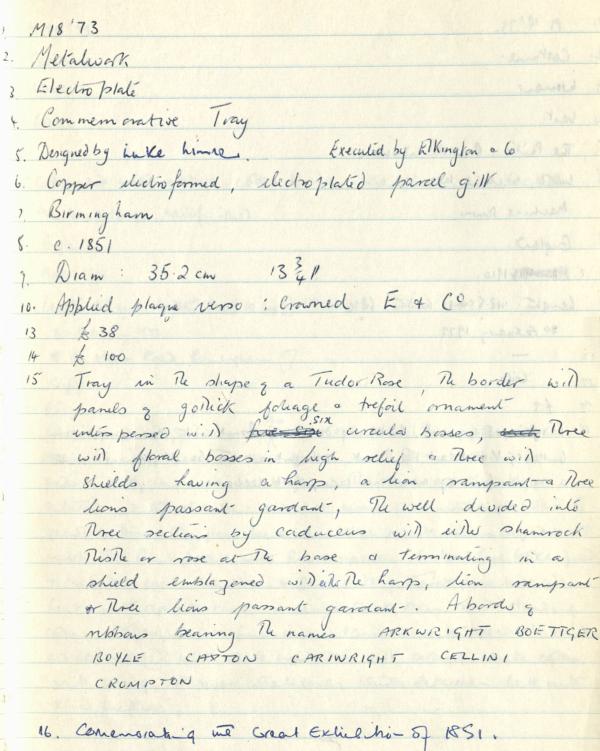 1. M18'73
2. Metalwork
3 Electroplate
4. Commemorative Tray
5. Designed by Luke Limner. Executed by Elkington & Co
6. Copper electroformed, electroplated parcel gilt
7. Birmingham
8. c. 1851
9. Diam : 35.2 cm 13 3/4"
10. Applied plaque verso : Crowned E & Co
13 £ 38
14 £ 100
15 Tray in the shape of a Tudor Rose, the border with
panels of gothick foliage & trefoil ornament
interspersed with six circular bosses, three
with floral bosses in high relief & three with
shields having a harp, a lion rampant & three
lions passant gardant, the well divided into
three sections by caduceus with either shamrock
thistle or rose at the base & terminating in a
shield emblazened with the harp, lion rampant
or three lions passant gardant. A border of
ribbons bearing the names ARKWRIGHT BOETTGER
BOYLE CAXTON CARIWRIGHT CELLINI
CROMPTON
16. Comemorating the Great Exhibition of 1851.